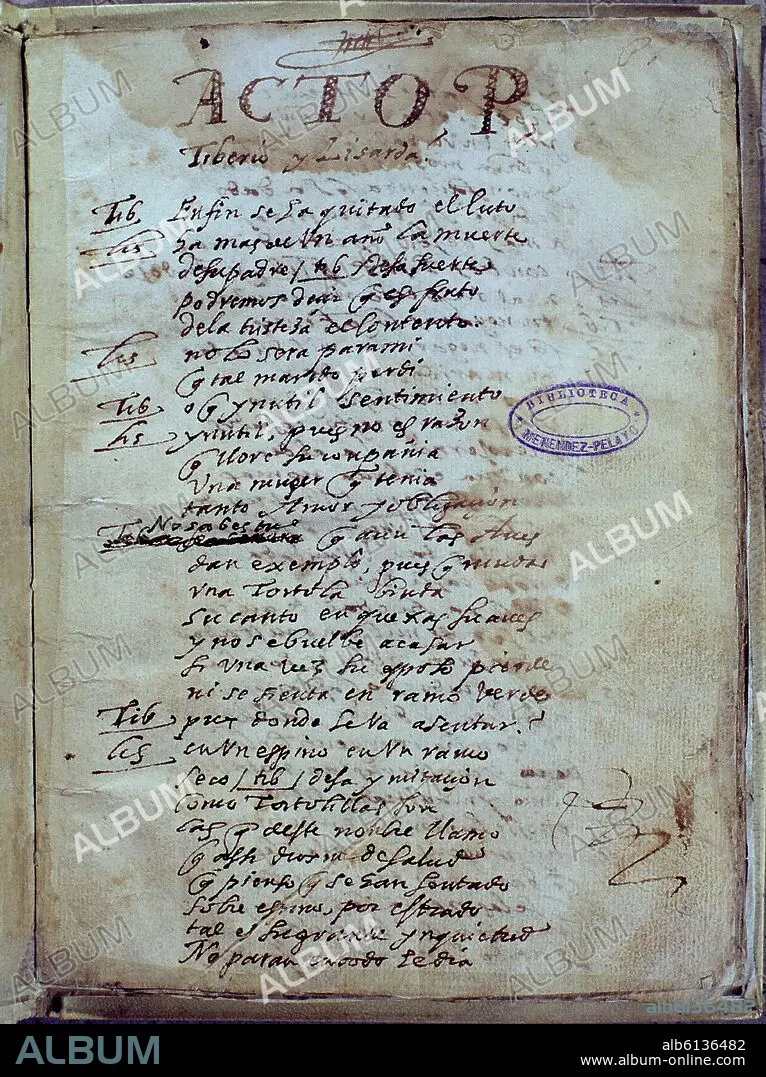 ACTO P
Tiberio y Lisarda.
Tib Enfin se ha quitado el luto
Lis ha mas de Un año la muerte
desu padre / tib / desa suerte
podremos deçir q es fruto
dela tristeza el contento.
Lis no lo sera para mi
q tal marido perdi
Tib o q ynutil sentimiento
Lis ynutil, pues no es razon
q llore su conpañia
Una muger q tenia
tanto Amor y obligaçion
No sabes tu q aun las Aves
dan exemplo, pues q
una Tortola biuda
su canto en quexas suaves
y no se buelbe a casar
si una vez su esposo pierde
ni se sienta en ramo verde
Tib pues donde se va asentar?
Lis en Un espino en Un ramo
seco / tib / desa ymitaçion
como Tortolillas son
las q deste nonbre llamo
q assi dios me de salud
q pienso q se han sentado
sobre espino, por estrado
tal es su grande ynquietud
No paran en todo el dia
BIBLIOTECA
MENENDEZ-PELAYO
ALBUM
alb6136482
ALBUM
alb6136482
www.album-online.com